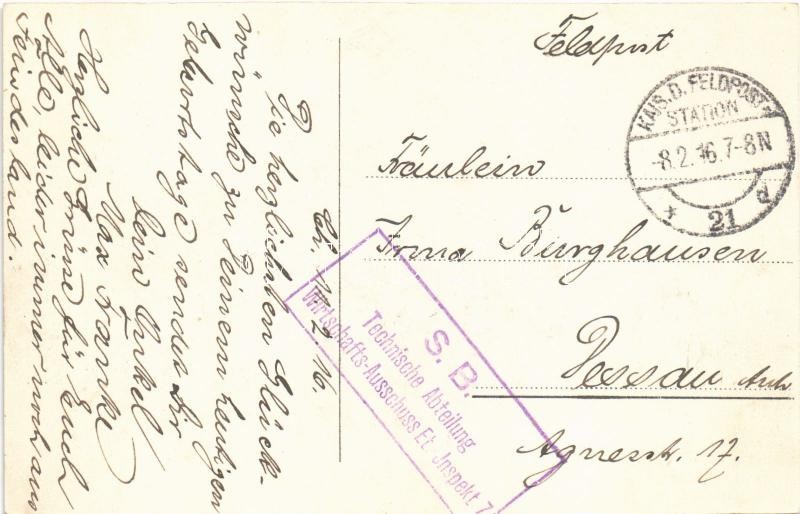 Feldpost
KAIS. D. FELDPOST
STATION
-8.2.16.7-8N
* 21 d
Fräulein
Irma Burghausen
Dessau Anh.
Agnesstr. 17.
S. B.
Technische Abteilung
Wirtschafts-Ausschuss Et. Inspekt. 7
2. 16.
Die herzlichsten Glück-
wünsche zu Deinem heutigen
Geburtstage sendet Dir
Dein Onkel
Max Franke
Herzliche Grüße für Euch
Alle, leider immer noch aus
Feindesland.